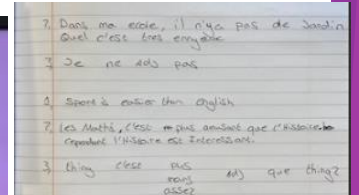 7, Dans ma ecole, il n'ya pas de Jardin
Quel c'est tres
3, Je ne adj pas
9, Sport is easier than english
7, les Maths, c'est plus amusant que l'Histoire.
cependant l'Histoire est Interessant.
3, thing c'est plus
moins adj que thing2
assez